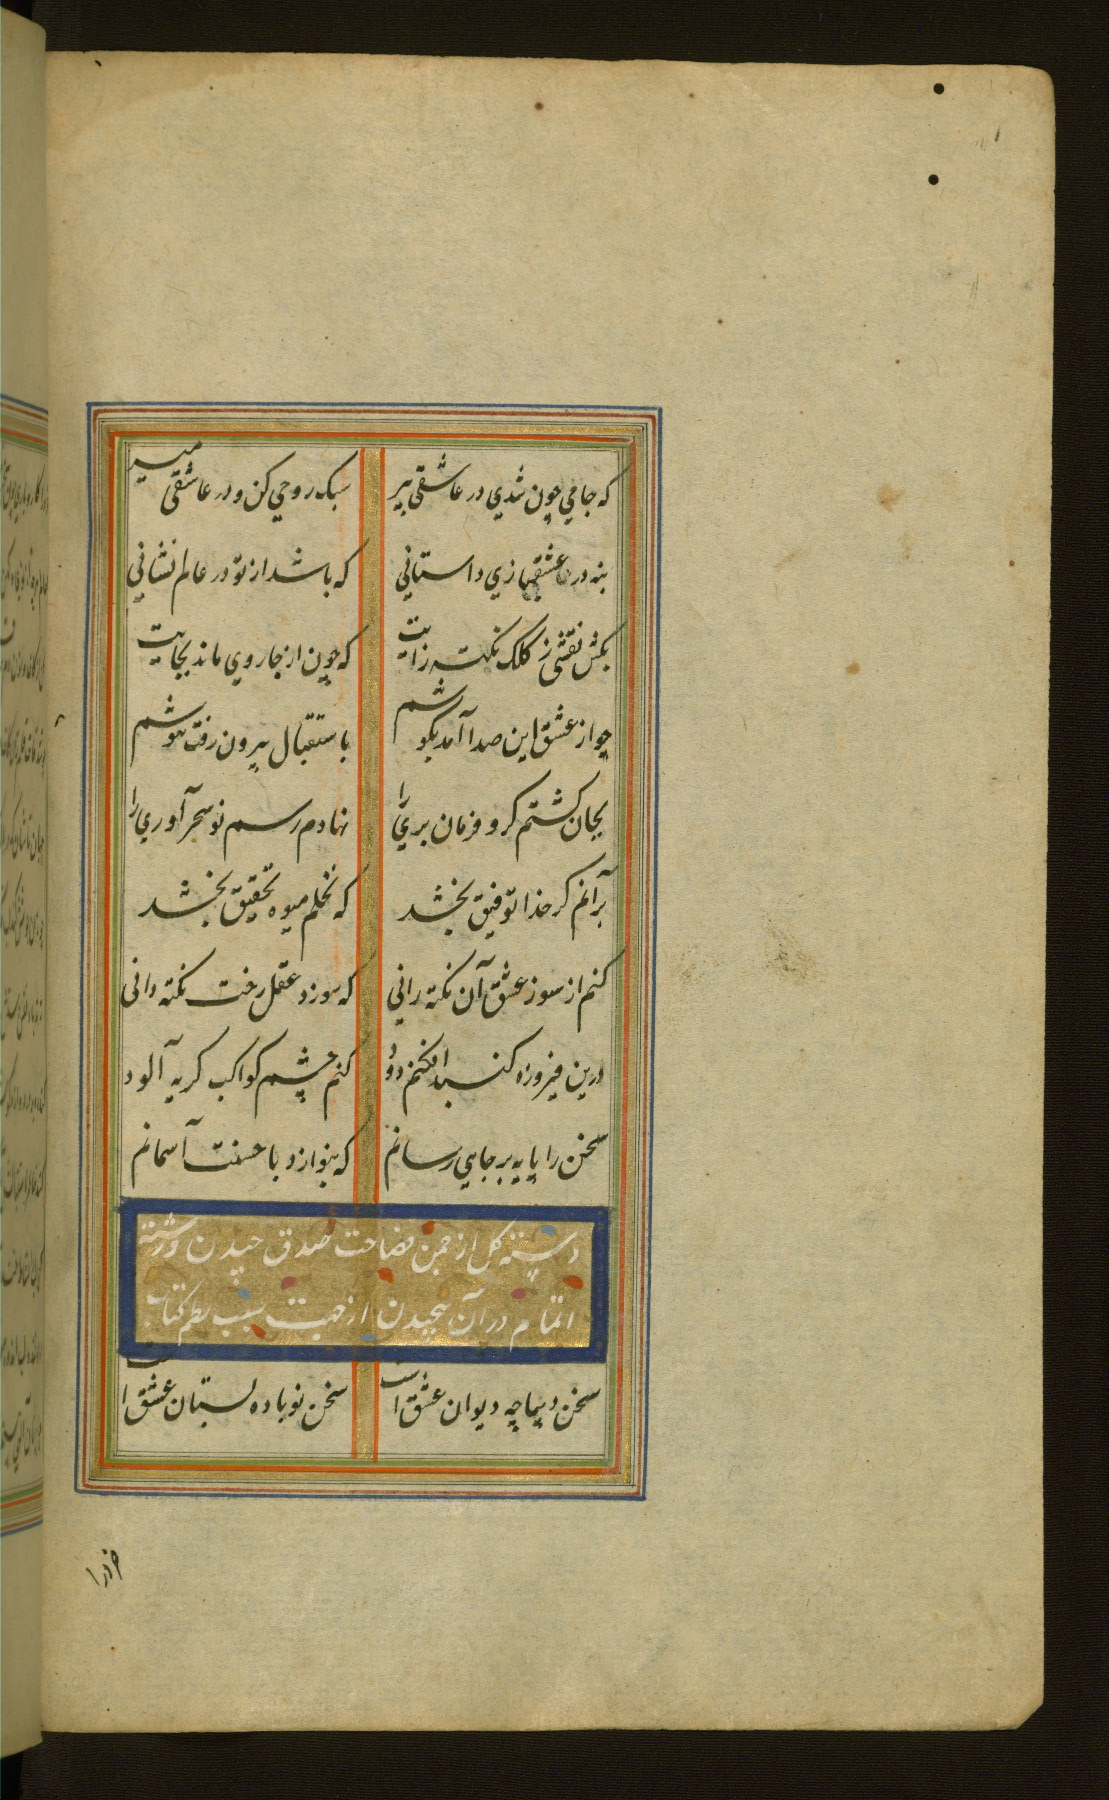 که جامي چون شدي در عاشقي پير سبک روحي کن و در عاشقي مير
بنه در عشقبازي داستاني که باشد از تو در عالم نشاني
بکش نقشي ز کلک نکته زايت که چون از جا روي ماند بجايت
چو از عشق اين صدا آمد بگوشم باستقبال بيرون رفت هوشم
بجان گشتم گرو فرمان بري را نهادم رسم نو سحر آوري را
برآنم گر خدا توفيق بخشد که نخلم ميوه تحقيق بخشد
کنم از سوز عشق آن نکته راني که سوزد عقل رخت نکته داني
درين فيروزه گنبد افکنم دود کنم چشم کواکب گريه آلود
سخن را پايه بر جايي رسانم که بنوازد باحسنت آسمانم
دسته گل از چمن فصاحت صدق چيدن و رشته
اتمام در آن پيچيدن از جهت سبب نظم کتاب
سخن ديباچه ديوان عشق است سخن نوباده بستان عشق است
خرد را